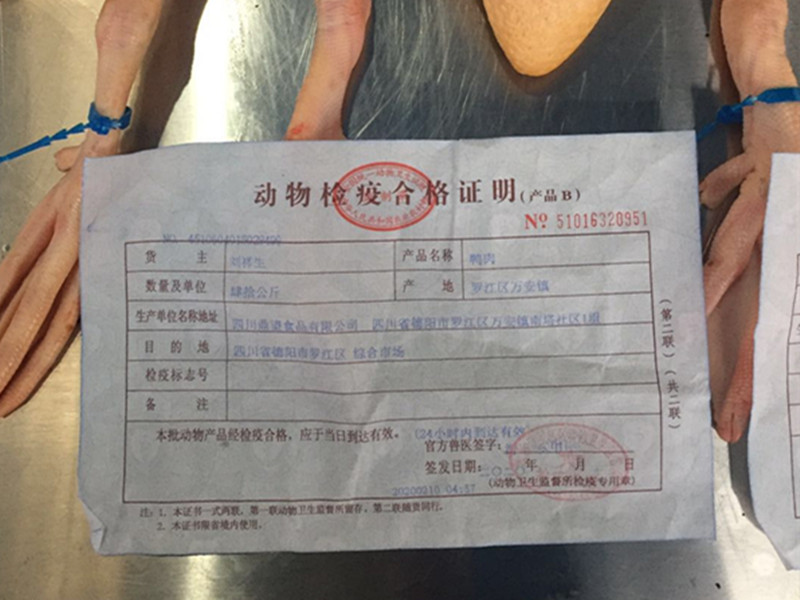 动物检疫合格证明(产品B)
No 51016320951
货 主 刘祥生 产品名称 鸭肉
数量及单位 肆拾公斤 产 地 罗江区万安镇
生产单位名称地址 食品有限公司 四川省德阳市罗江区万安镇南塔社区1组
目 的 地 四川省德阳市罗江区 综合市场
检疫标志号
备 注
本批动物产品经检疫合格，应于当日到达有效。(24小时内到达有效
官方兽医签字：
签发日期： 年 月 日
20200210 04:57 (动物卫生监督所检疫专用章)
注：1. 本证书一式两联，第一联动物卫生监督所留存，第二联随货同行。
2. 本证书限省境内使用。
(第二联)(共二联)